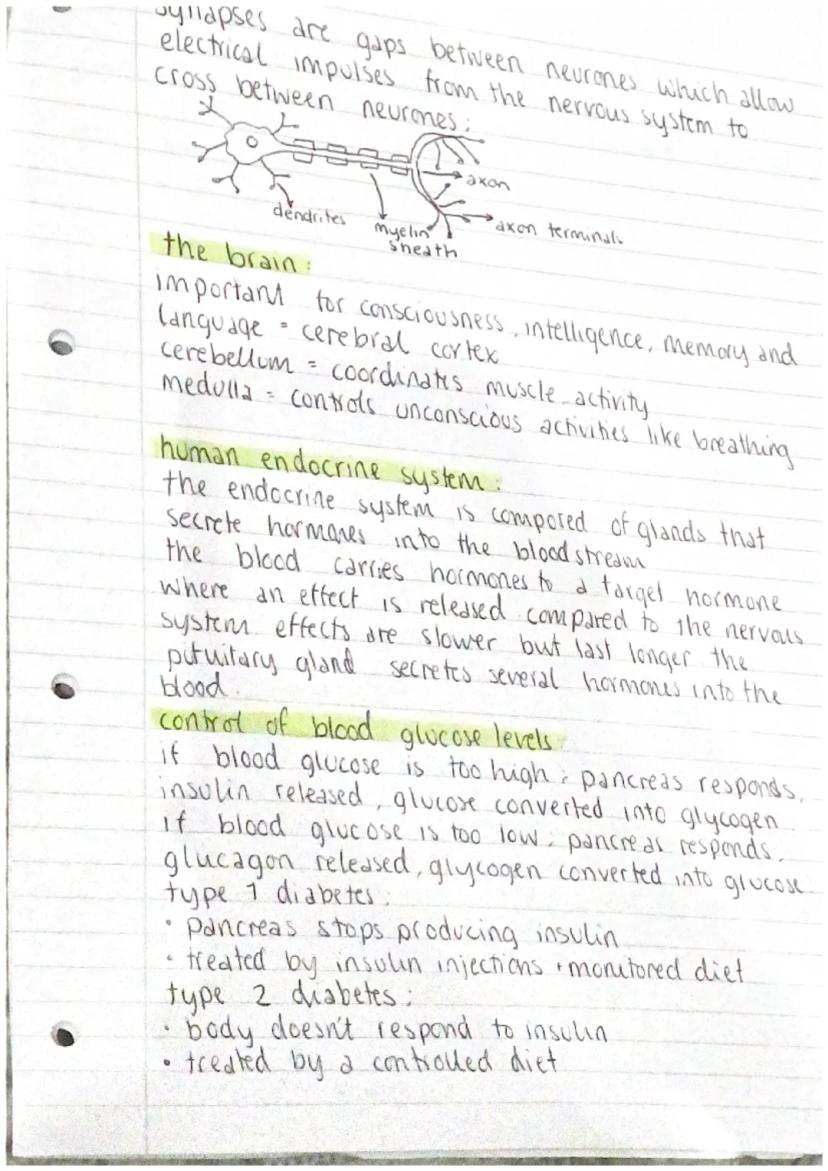 synapses are gaps between neurones which allow
electrical impulses from the nervous system to
cross between neurones:
axon
dendrites
myelin
sheath
axon terminals
the brain:
important for consciousness, intelligence, memory and
language = cerebral cortex
cerebellum = coordinates muscle activity
medulla = controls unconscious activities like breathing
human endocrine system:
the endocrine system is composed of glands that
secrete hormones into the bloodstream
the blood carries hormones to a target hormone
where an effect is released. compared to the nervous
system effects are slower but last longer the
pituitary gland secretes several hormones into the
blood.
control of blood glucose levels:
if blood glucose is too high: pancreas responds,
insulin released, glucose converted into glycogen.
if blood glucose is too low: pancreas responds,
glucagon released, glycogen converted into glucose
type 1 diabetes:
• pancreas stops producing insulin
• treated by insulin injections + monitored diet
type 2 diabetes:
• body doesn't respond to insulin
• treated by a controlled diet